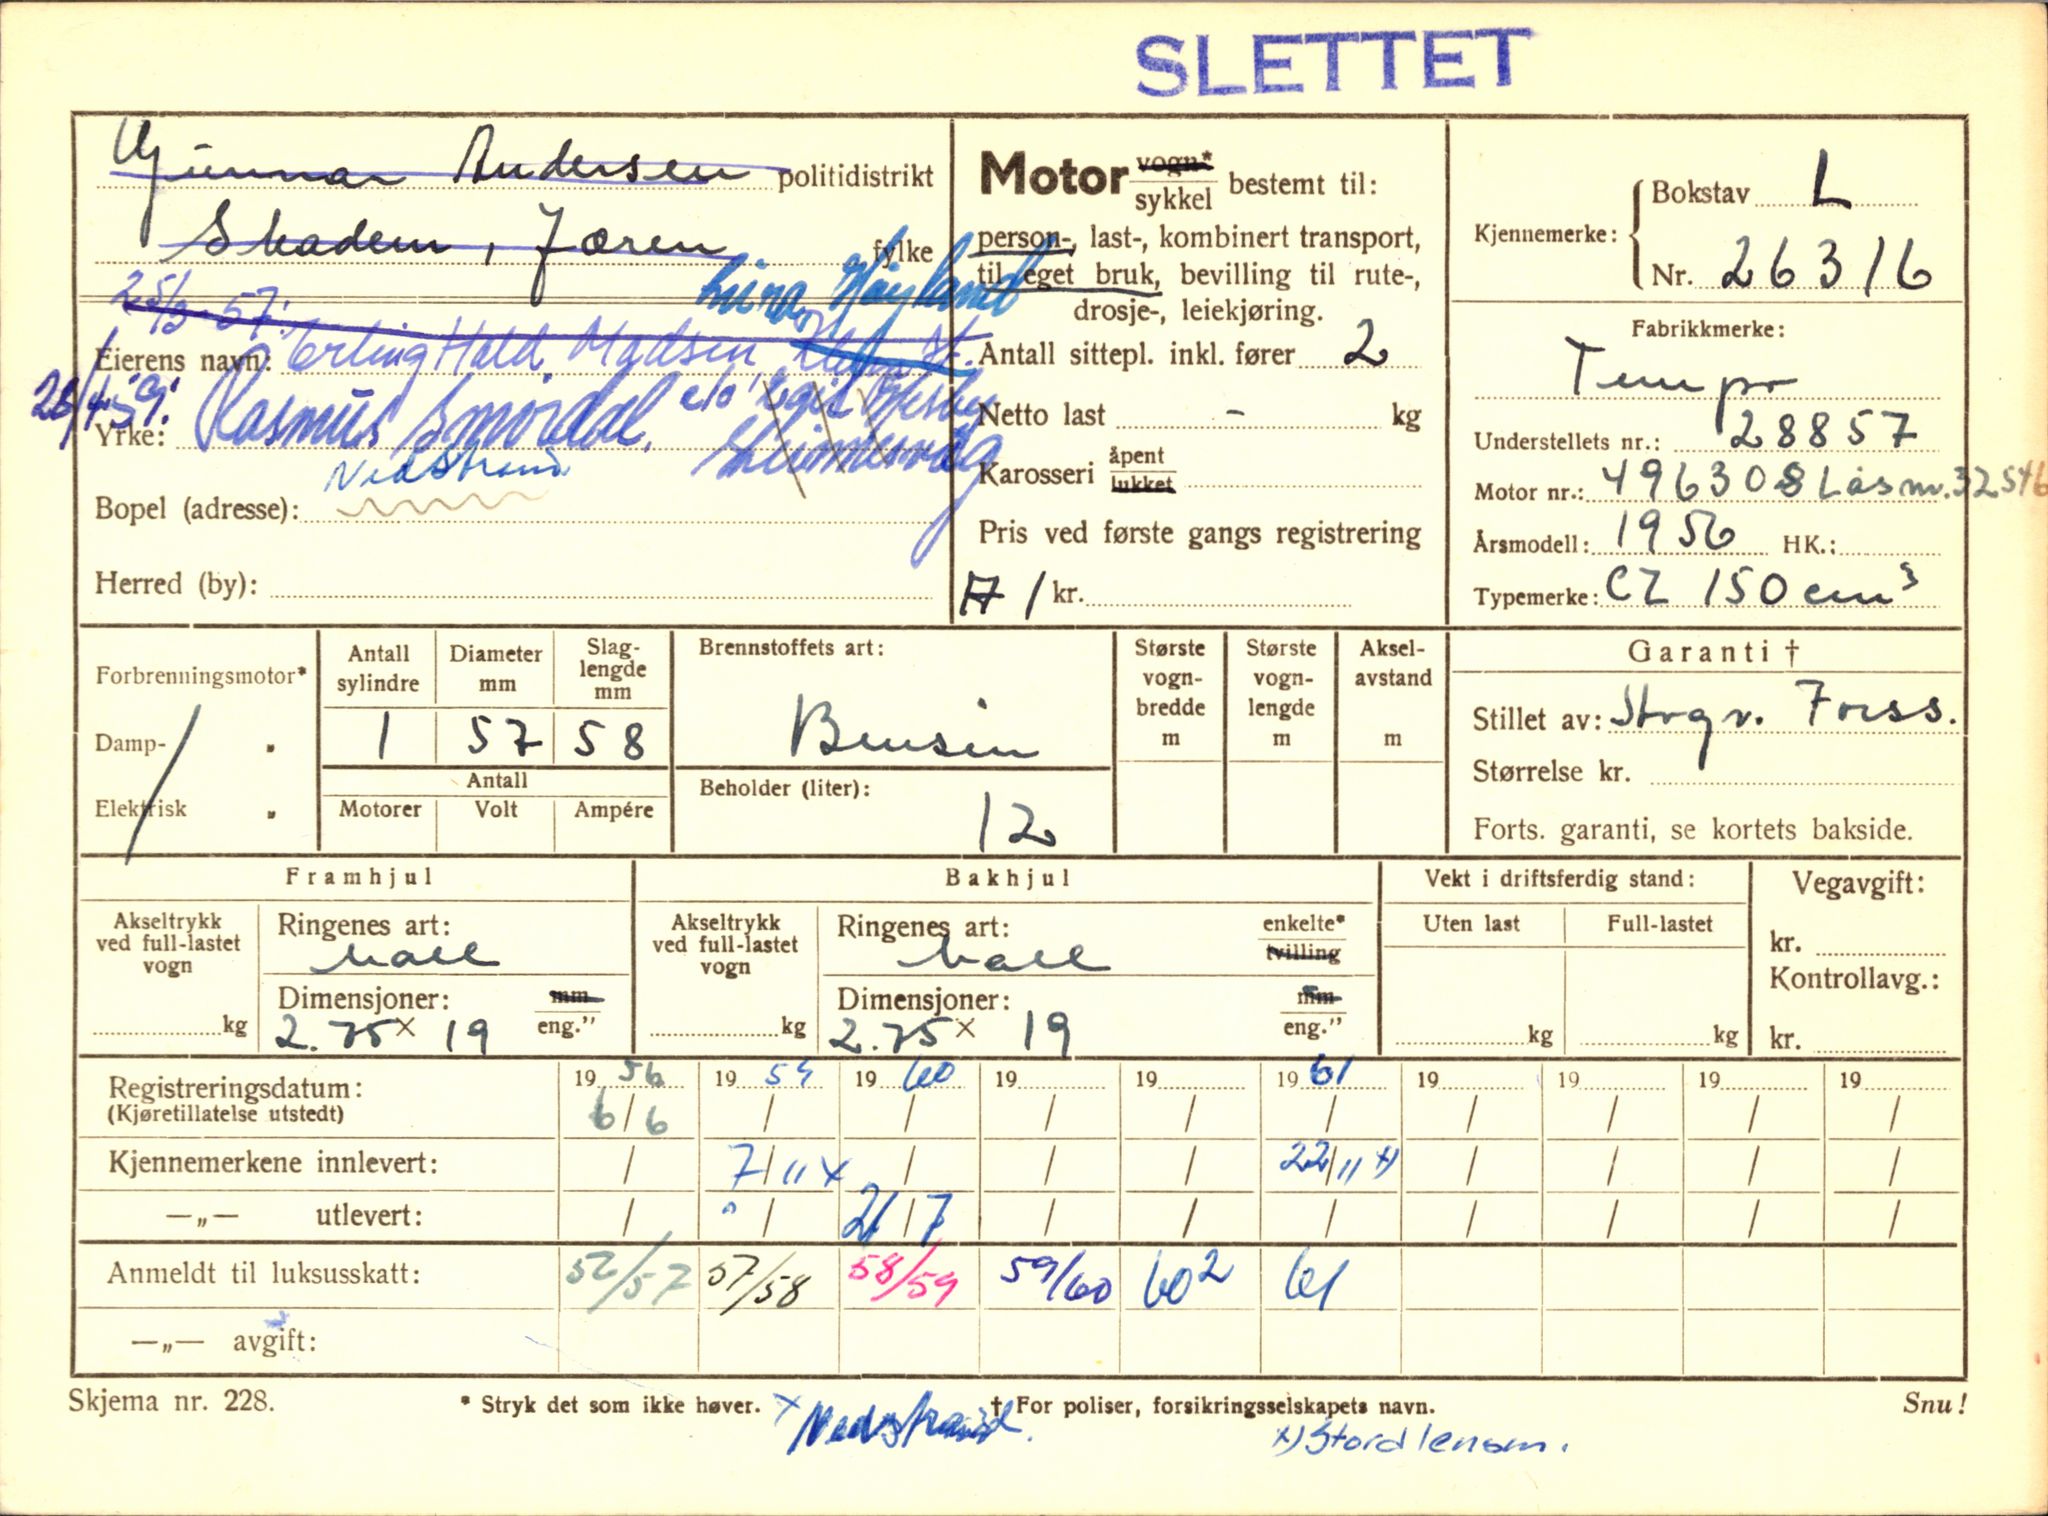 SLETTET
Gunnar Andersen politidistrikt
Skadem, Jæren fylke
25/3-57: Lina Høyland
Eierens navn: Erling Hald Madsen,
28/4-59: c/o Egil
Yrke: Rasmus Smørdal,
Nedstrand
Bopel (adresse):
Herred (by):
Motor vogn*
sykkel bestemt til:
person-, last-, kombinert transport,
til eget bruk, bevilling til rute-,
drosje-, leiekjøring.
Antall sittepl. inkl. fører 2
Netto last - kg
Karosseri åpent
lukket
Pris ved første gangs registrering
A / kr.
Kjennemerke: Bokstav L
Nr. 26316
Fabrikkmerke:
Tempo
Understellets nr.: 28857
Motor nr.: 496308 Lås nr. 32546
Årsmodell: 1956 HK.:
Typemerke: CZ 150 cm³
Forbrenningsmotor*
Damp- "
Elektrisk "
Antall sylindre
Diameter mm
Slag-lengde mm
1 57 58
Antall
Motorer Volt Ampére
Brennstoffets art:
Bensin
Beholder (liter):
12
Største vogn-bredde m
Største vogn-lengde m
Aksel-avstand m
Garanti †
Stillet av: Storgr. Forss.
Størrelse kr.
Forts. garanti, se kortets bakside.
Framhjul
Akseltrykk ved full-lastet vogn
kg
Ringenes art:
hall
Dimensjoner: mm
2.75 x 19 eng."
Bakhjul
Akseltrykk ved full-lastet vogn
kg
Ringenes art: enkelte*
hall tvilling
Dimensjoner: mm
2.75 x 19 eng."
Vekt i driftsferdig stand:
Uten last Full-lastet
kg kg
Vegavgift:
kr.
Kontrollavg.:
kr.
Registreringsdatum: 19 56 19 59 19 60 19 19 19 61 19 19 19 19
(Kjøretillatelse utstedt) 6/6 / / / / / / / / /
Kjennemerkene innlevert: / 7/11 x / / / 22/11 x) / / / /
—„— utlevert: / " / 21/7 / / / / / / /
Anmeldt til luksusskatt: 56/57 57/58 58/59 59/60 60² 61
—„— avgift:
Skjema nr. 228. * Stryk det som ikke høver. † For poliser, forsikringsselskapets navn. Snu!
x Nedstrand.
x) Stord lensm.